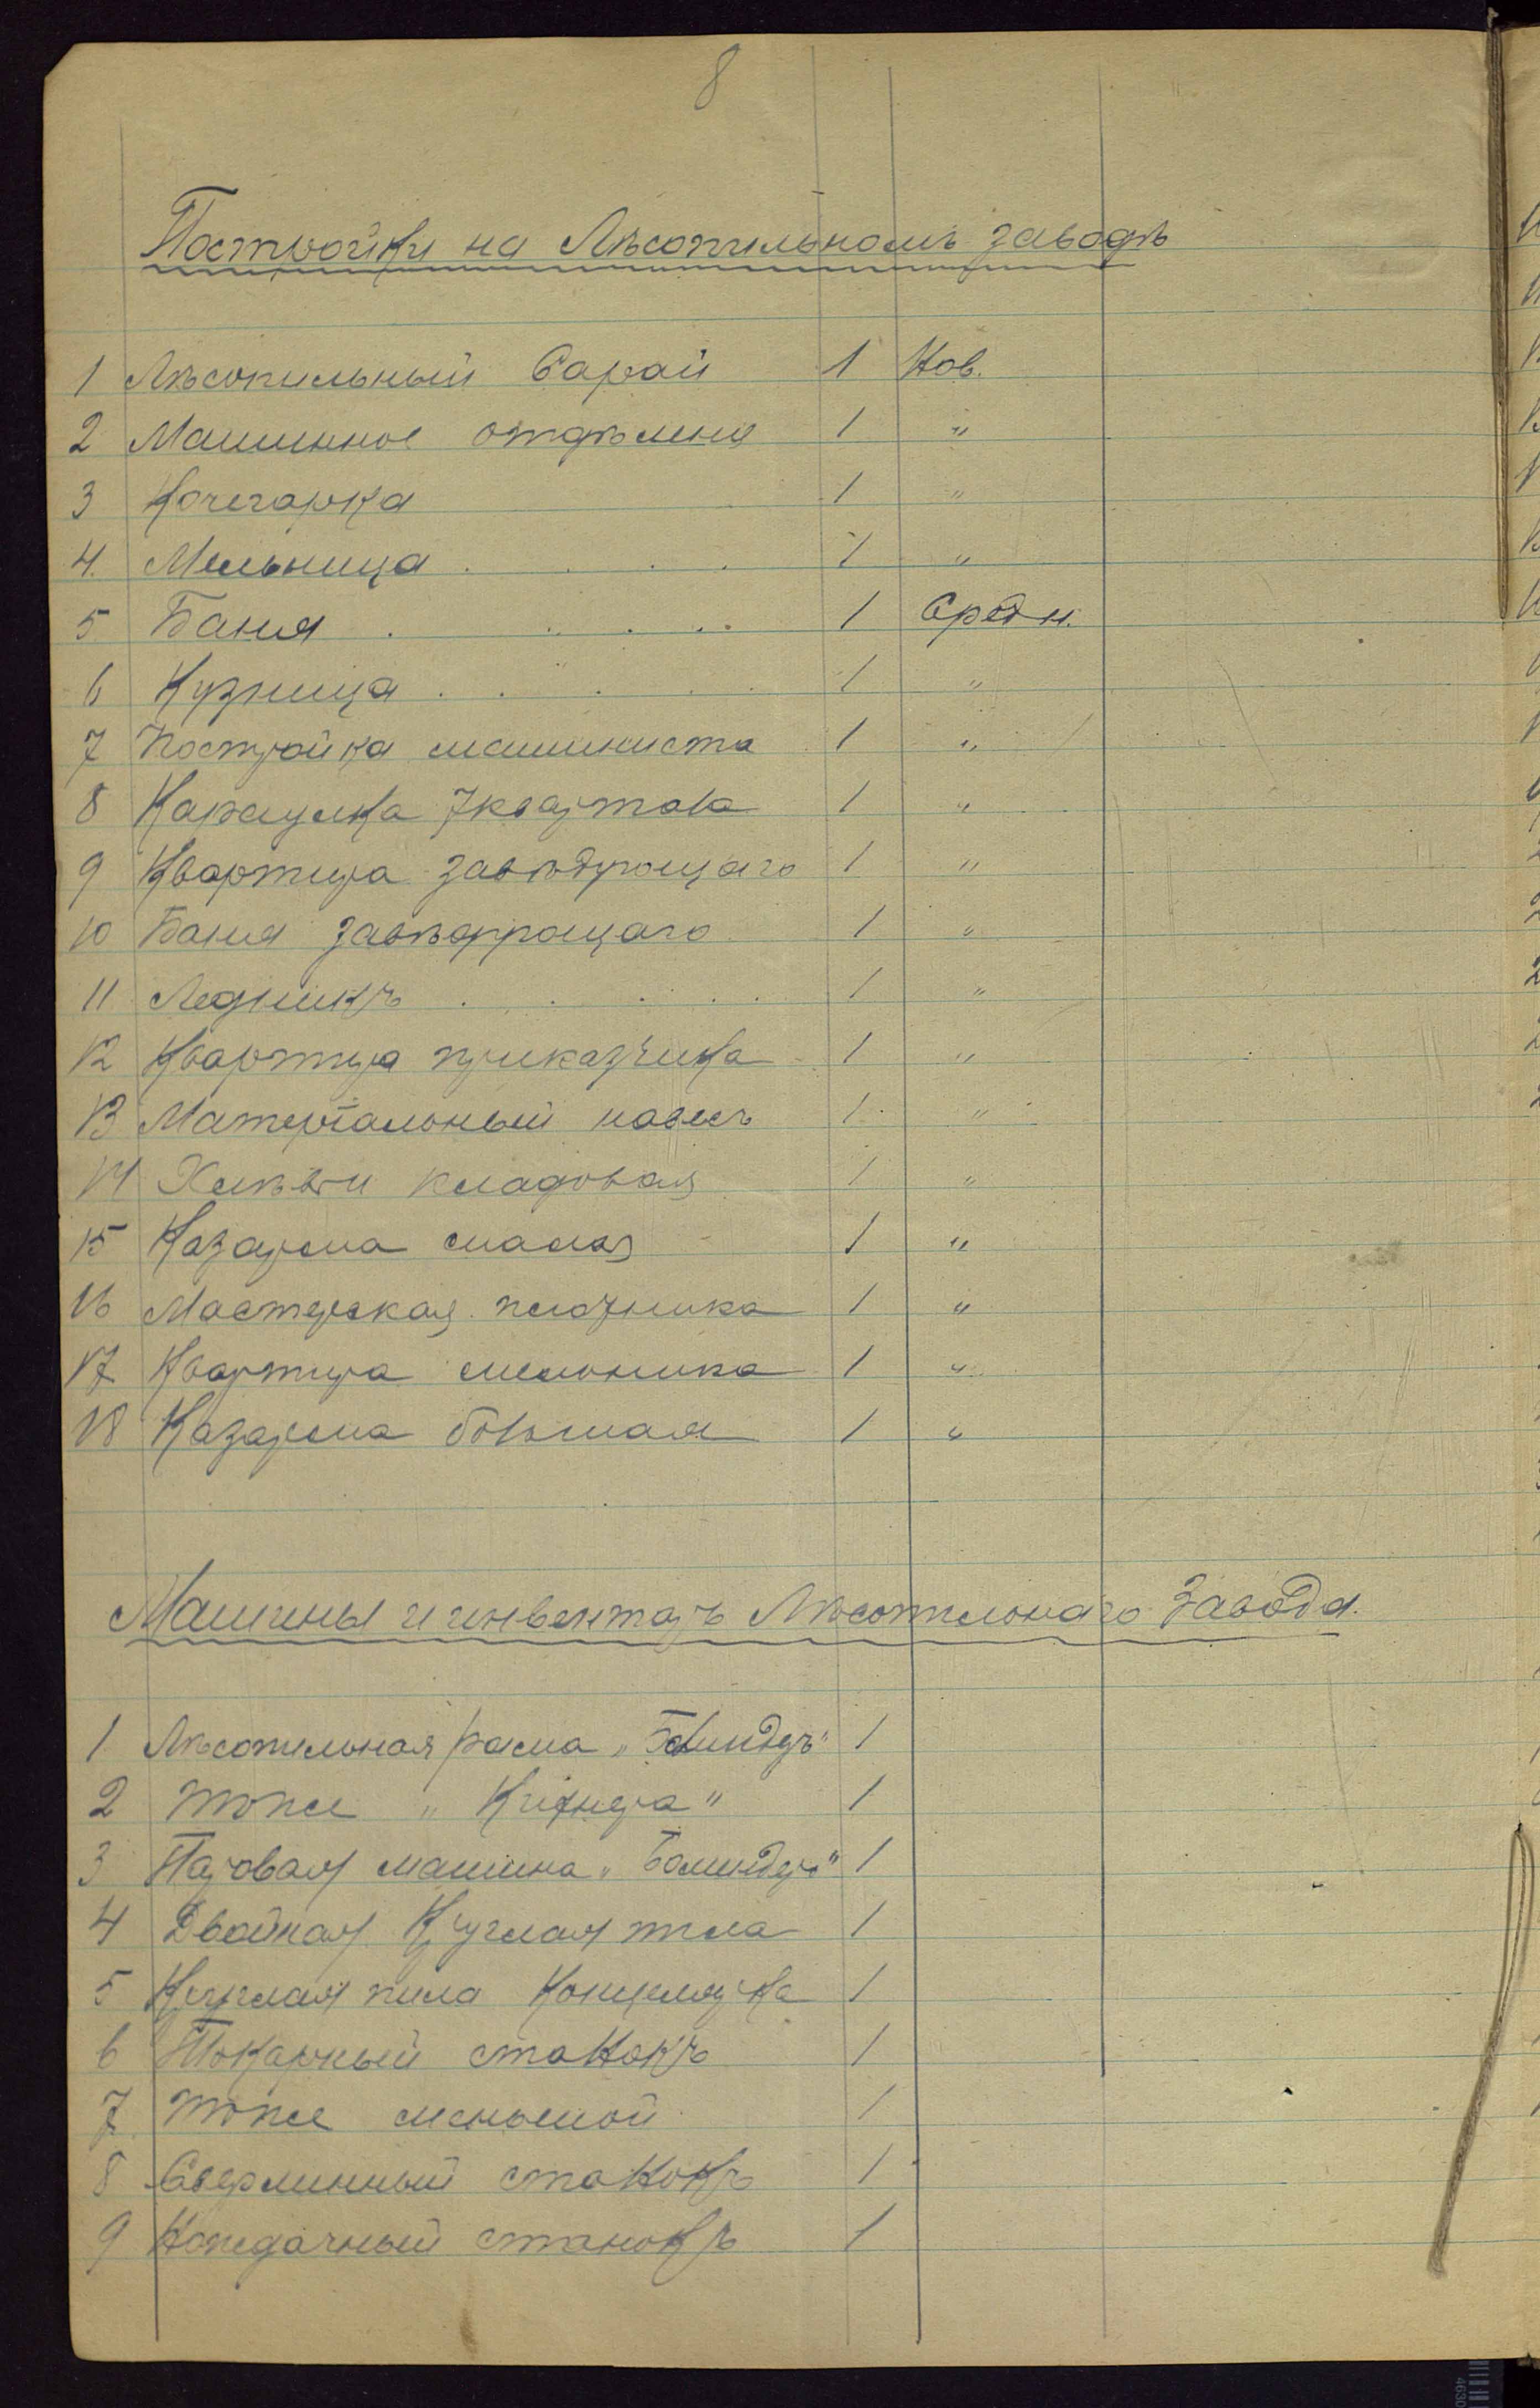 8
Постройки на Лѣсопильномъ заводѣ
1 Лѣсопильный Сарай 1 Нов.
2 Машинное отдѣленія 1 "
3 Кочегарка 1 "
4. Мельница . . . . 1 "
5 Баня . . . . 1 Средн.
6 Кузница . . . . 1 "
7 Постройка машиниста 1 "
8 Караулка 1 "
9 Квартира завѣдующаго 1 "
10 Баня завѣдующаго 1 "
11 Ледникъ . . . . . 1 "
12 Квартира приказчика 1 "
13 Матеріальный навесъ 1 "
14 Хлѣвы и кладовая 1 "
15 Казарма малая 1 "
16 Мастерская плотника 1 "
17 Квартира мельника 1 "
18 Казарма большая 1 "
Машины и инвентарь Лѣсопильнаго Завода.
1 Лѣсопильная рама „Болиндеръ" 1
2 тоже 1
3 Паровая машина „Болиндеръ" 1
4 Двойная Круглая пила 1
5 Круглая пила 1
6 Токарный станокъ 1
7 тоже меньшой 1
8 Сверлинный станокъ 1
9 Наждачный станокъ 1